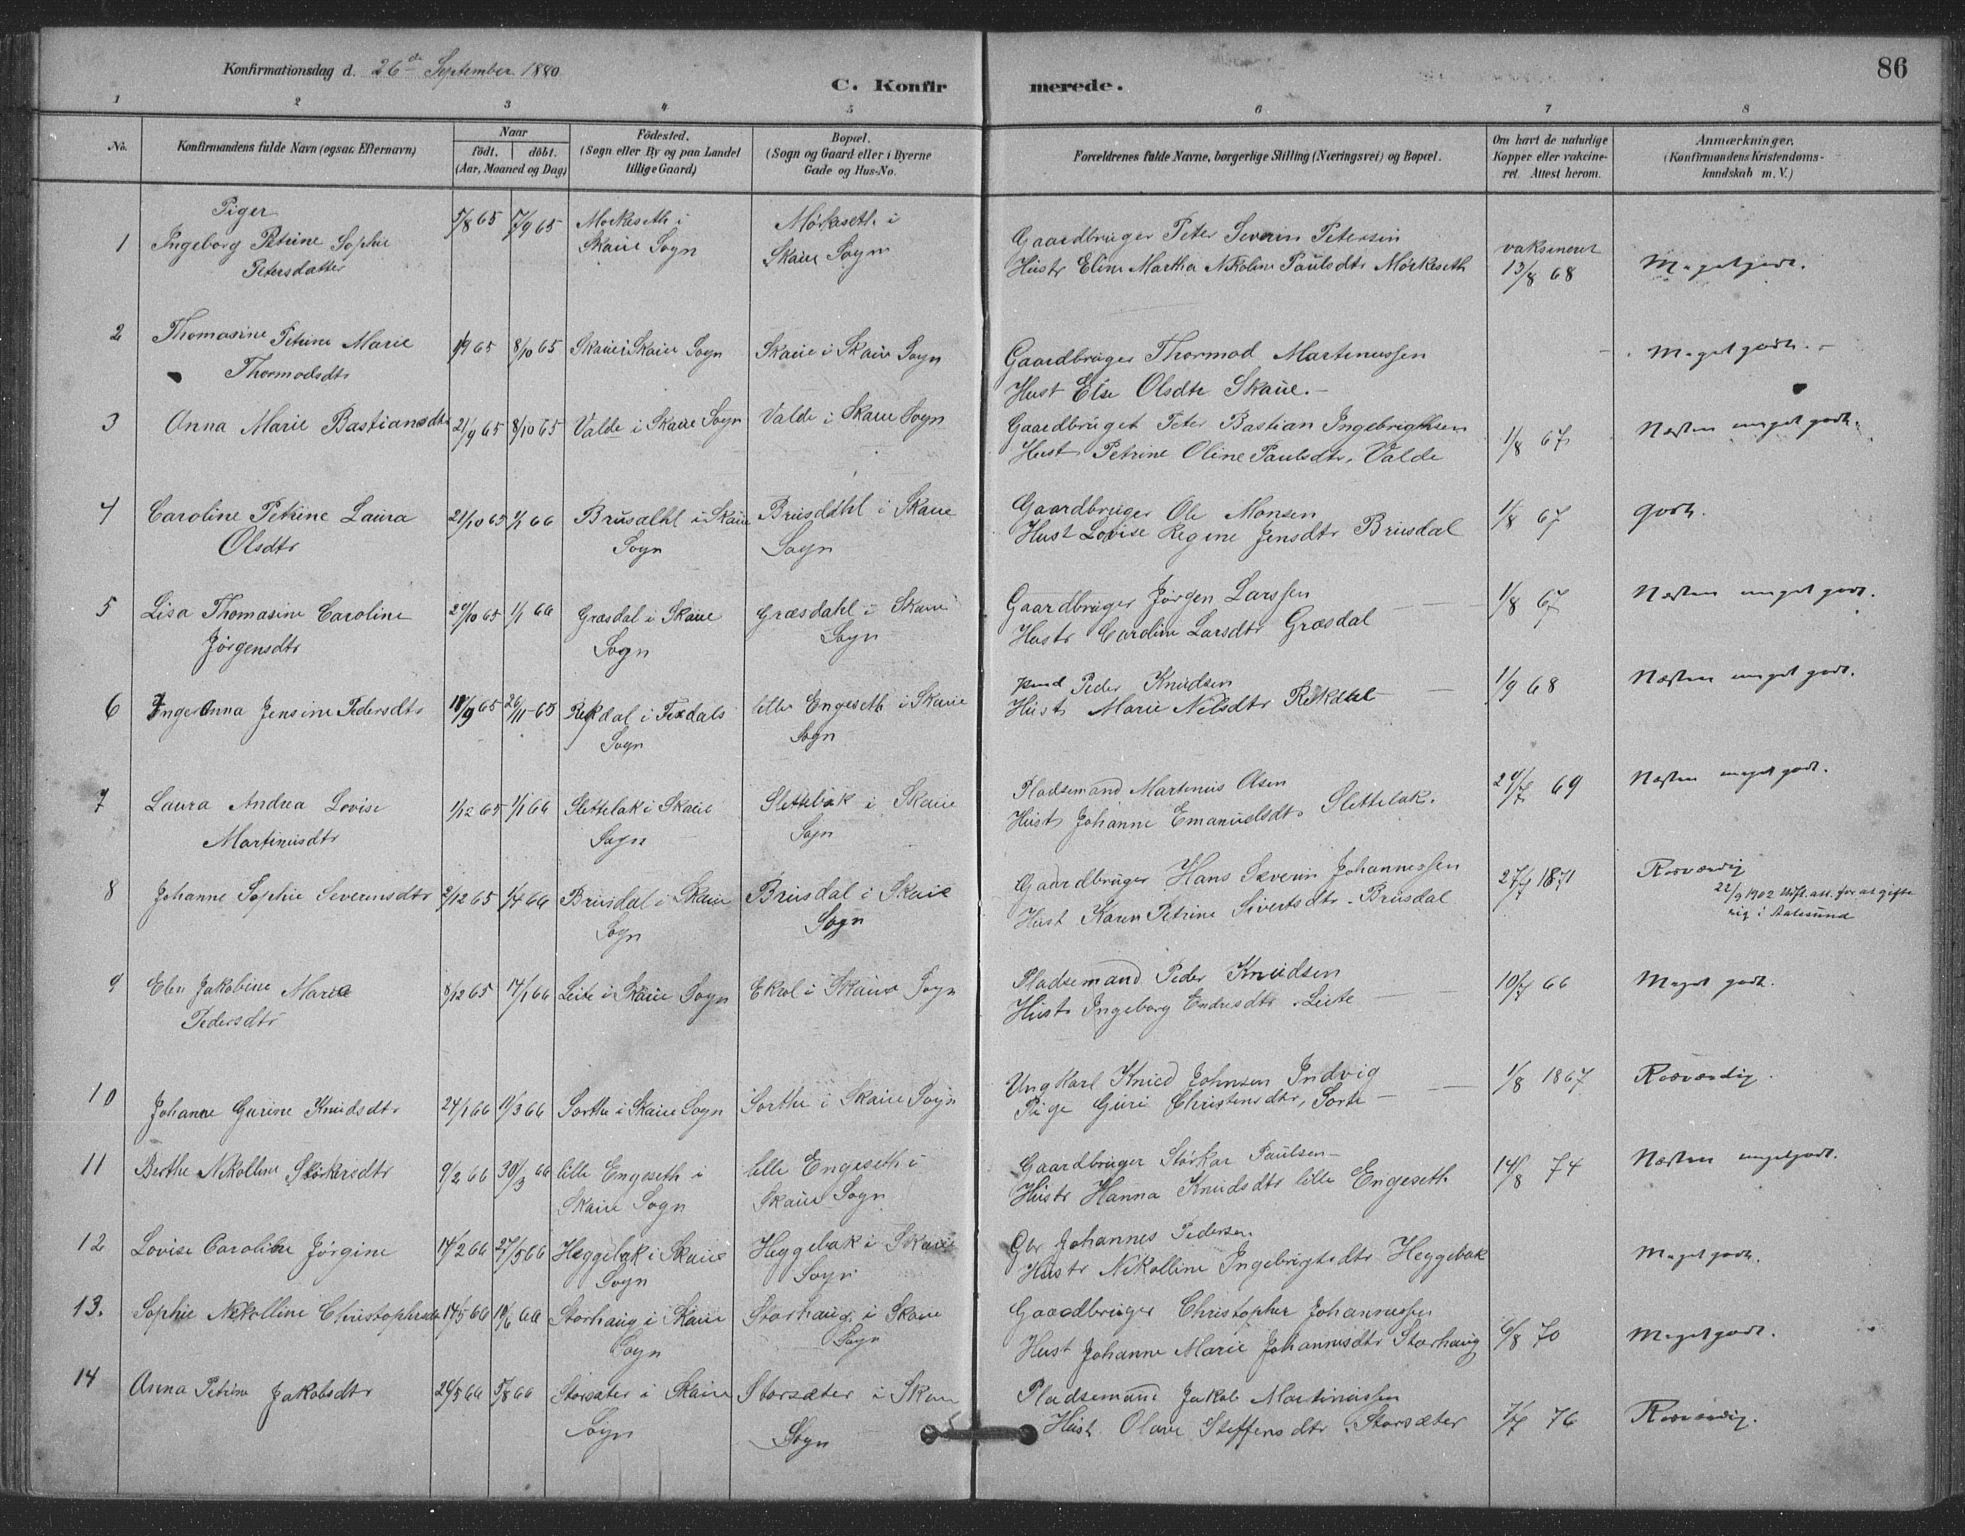 Konfirmationsdag d. 26de September 1880
C. Konfirmerede.
86
1 2 3 4 5 6 7 8
No.
Konfirmandens fulde Navn (ogsaa Efternavn)
Naar
födt. döbt.
(Aar, Maaned og Dag)
Födested.
(Sogn eller By og paa Landet
tillige Gaard)
Bopæl.
(Sogn og Gaard eller i Byerne
Gade og Hus-No.
Forældrenes fulde Navne, borgerlige Stilling (Næringsvei) og Bopæl.
Om havt de naturlige
Kopper eller vakcine-
ret. Attest herom.
Anmærkninger.
(Konfirmandens Kristendoms-
kundskab m. V.)
Piger
1 Ingeborg Petrine Sophie 5/8 65 17/9 65 Morkeseth i Mørkseth i
Petersdatter Skaue Sogn Skaue Sogn
Gaardbruger Peter Severin Petersen vaksineret
Hustr Eline Martha Nikoline Paulsdtr Mörkeseth 13/8 68 Megetgodt.
2 Thomasine Petrine Marie 8/10 65 Skaue i Skaue Sogn Skaue i Skaue Sogn
Thormodsdtr
Gaardbruger Thormod Martinussen Meget godt.
Hust Else Olsdtr Skaue.
3 Anna Marie Bastiansdtr 21/9 65 8/10 65 Valde i Skaue Sogn Valde i Skaue Sogn
Gaardbruget Peter Bastian Ingebrigtsen Næsten meget godt.
Hust Petrine Oline Paulsdtr. Valde 1/8 67
4 Caroline Petrine Laura 21/10 65 1/1 66 Brusdahl i Skaue Brusdahl i Skaue
Olsdtr Sogn Sogn
Gaardbruger Ole Monsen 1/8 67 godt.
Hust Lovise Regine Jensdtr Brusdal
5 Lisa Thomasine Caroline 29/10 65 1/1 66 Græsdal i Skaue Græsdahl i Skaue
Jørgensdtr Sogn Sogn
Gaardbruger Jørgen Larssen 1/8 67 Næsten meget godt.
Hustr Caroline Larsdtr Græsdal
6 Inger Anna Jensine Pedersdtr 18/9 65 26/11 65 Rekdal i Fixdals lille Engeseth i Skaue
Sogn Sogn
Peder Knudsen 1/9 68 Næsten meget godt.
Hust Marie Nilsdtr Rekdal
7 Laura Andrea Lovise 1/12 65 1/1 66 Slettebak i Skaue Slettebak i Skaue
Martinusdtr Sogn Sogn
Pladsemand Martinus Olsen 24/7 69 Næsten meget godt.
Hust Johanne Emanuelsdtr Slettebak.
8 Johanne Sophie Severinsdtr 2/12 65 1/4 66 Brusdal i Skaue Brusdal i Skaue
Sogn Sogn
Gaardbruger Hans Severin Johannessen 27/7 1871 Rosværdig
Hust Karen Petrine Sivertsdtr. Brusdal 22/9 1902 Udst. att. for at gifte
sig i Aalesund
9 Elen Jakobine Marie 8/12 65 14/1 66 Leite i Skaue Sogn Ekrol i Skaue Sogn
Pedersdtr
Pladsemand Peder Knudsen 10/7 66 Meget godt.
Hustr Ingeborg Endresdtr. Leite
10 Johanne Gurine Knudsdtr 24/1 66 11/3 66 Sorthe i Skaue Sogn Sorthe i Skaue Sogn
Ungkarl Knud Johnsen Indvig 1/8 1867 Rosværdig.
Pige Guri Christensdtr, Sorte
11 Berthe Nikolline Störkersdtr 9/2 66 30/3 66 lille Engeseth i lille Engeseth i
Skaue Sogn Skaue Sogn
Gaardbruger Störkar Paulsen 14/8 74 Næsten megetgodt.
Hustr Hanna Knudsdtr lille Engeseth
12 Lovise Caroline Jørgine 14/2 66 27/5 66 Heggebak i Skaue Heggebak i Skaue
Sogn Sogn
Gbr Johannes Pedersen Megetgodt.
Hustr Nikolline Ingebrigtsdtr Heggebak
13. Sophie Nikolline Christophsdtr 14/5 66 /6 66 Storhaug i Skaue Storhaug i Skaue
Sogn Sogn
Gaardbruger Christopher Johannessen 6/8 70 Megetgodt.
Hust Johanne Marie Johannesdtr Storhaug
14 Anna Petrine Jakobsdtr 24/5 66 5/8 66 Storsæter i Skaue Storsæter i Skaue
Sogn Sogn
Pladsemand Jakob Martinussen 7/7 76 Rosværdig.
Hust. Olave Steffensdtr. Storsæter